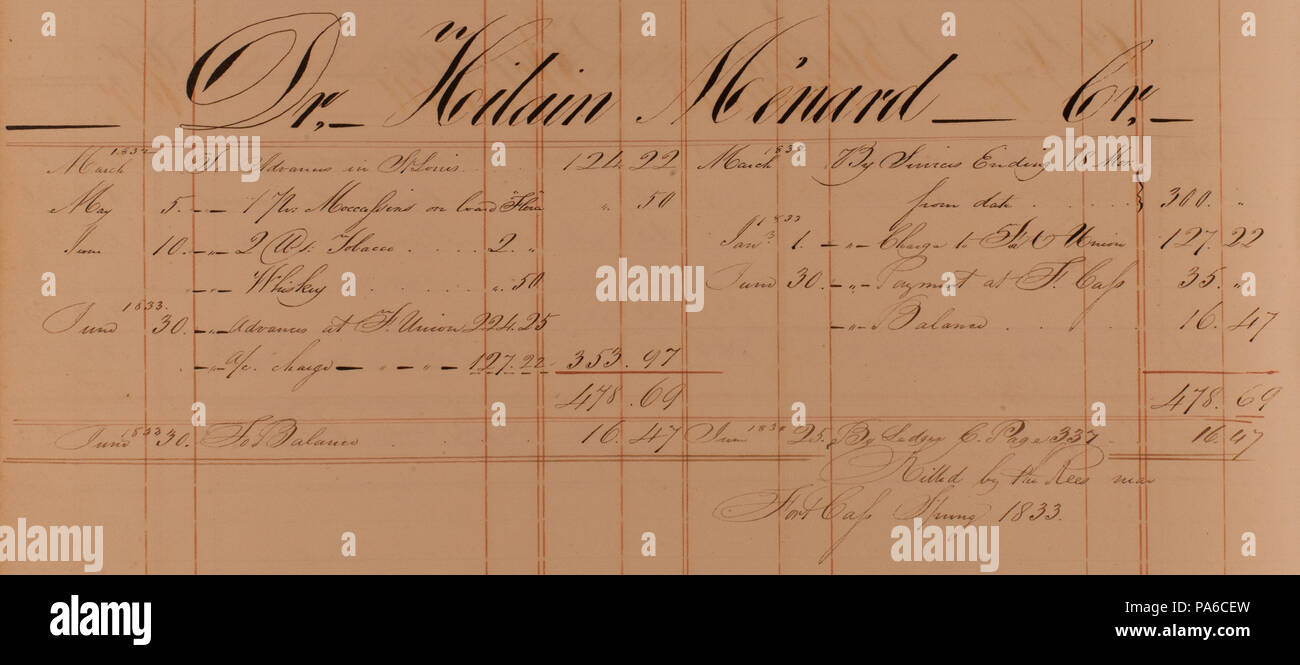 Dr,— Hilain Ménard — Cr,—
March 1832 To Advances in St Louis . . 124.22
May 5. —〃— 1 Pr. Moccassins on board "Flora" 〃 50
June 10. —〃— 2 lbs. Tobacco . . . . 2. 〃
—〃— Whiskey . . . . . . 〃. 50
June 1833. 30. —〃— Advances at Ft. Union 224.25
—〃— a/c. charge — 〃 — 〃 — 127.22 353.97
478.69
June 1833 30. To Balance . . . 16.47
March By Services Ending 18 Mos.
from date . . . . . . } 300. 〃
Jany. 1833 1. —〃— Charge to Ft. Union 127.22
June 30. —〃— Payment at Ft. Cass 35. 〃
—〃— Balance . . . . . 16.47
478.69
June 25. By Ledger C. Page 337 . . 16.47
Killed by the Rees near
Fort Cass Spring 1833.
a alamy
PA6CEW
www.alamy.com